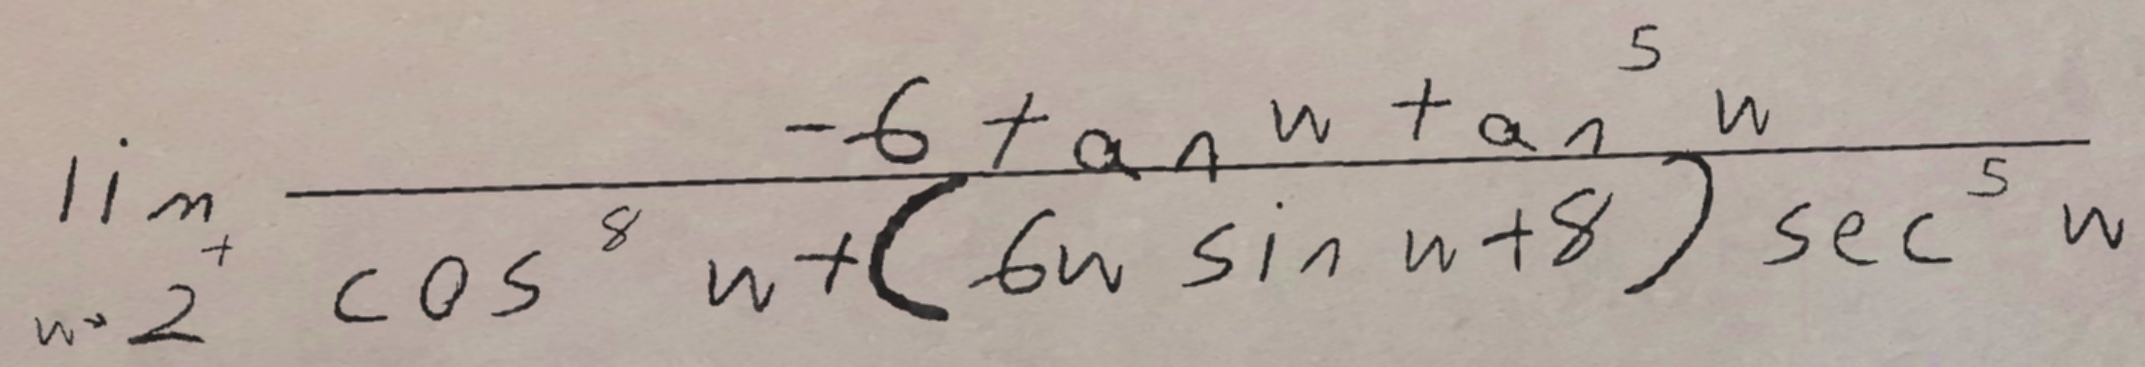 \lim_{w \to 2^+} \frac{-6 \tan w \tan^5 w}{\cos^8 w + (6w \sin w + 8) \sec^5 w}